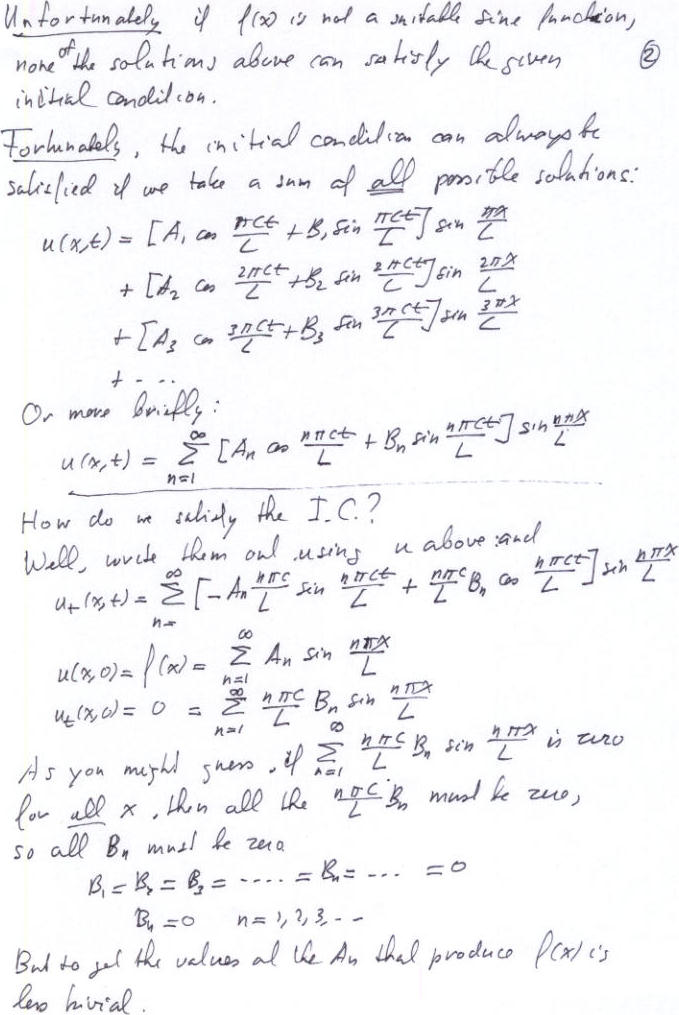 Unfortunately if f(x) is not a suitable sine function,
none of the solutions above can satisfy the given ②
initial condition.
Fortunately, the initial condition can always be
satisfied if we take a sum of all possible solutions:
u(x,t) = [A₁ cos πct/L + B₁ sin πct/L] sin πx/L
+ [A₂ cos 2πct/L + B₂ sin 2πct/L] sin 2πx/L
+ [A₃ cos 3πct/L + B₃ sin 3πct/L] sin 3πx/L
+ - ..
Or more briefly:
u(x,t) = ∞ Σ n=1 [Aₙ cos nπct/L + Bₙ sin nπct/L] sin nπx/L
How do we satisfy the I.C.?
Well, write them out using u above and
uₜ(x,t) = ∞ Σ n= [-Aₙ nπc/L sin nπct/L + nπc/L Bₙ cos nπct/L] sin nπx/L
u(x,0) = f(x) = ∞ Σ n=1 Aₙ sin nπx/L
uₜ(x,0) = 0 = ∞ Σ n=1 nπc/L Bₙ sin nπx/L
As you might guess, if ∞ Σ n=1 nπc/L Bₙ sin nπx/L is zero
for all x, then all the nπc/L Bₙ must be zero,
so all Bₙ must be zero
B₁ = B₂ = B₃ = ..... = Bₙ = ... = 0
Bₙ = 0 n = 1, 2, 3, - -
But to get the values of the An that produce f(x) is
less trivial.